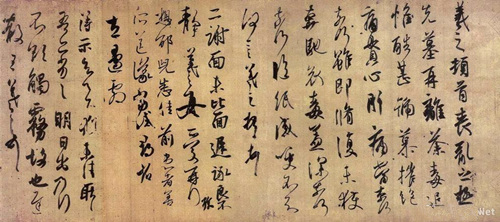 羲之頓首喪亂之極
先墓再離荼毒追
惟酷甚號慕摧絶
痛貫心肝痛當奈何
奈何雖即脩復未獲
奔馳哀毒益深奈何
奈何臨紙感哽不知
何言羲之頓首頓首
二謝面未比面遲詠良不
靜羲之女愛再拜
想邵兒悉佳前患者善
所送議當試尋省
左邊劇
得示知足下猶未佳耿耿
吾亦劣劣明日出乃行
不欲觸霧故也遲
散王羲之頓首
Net